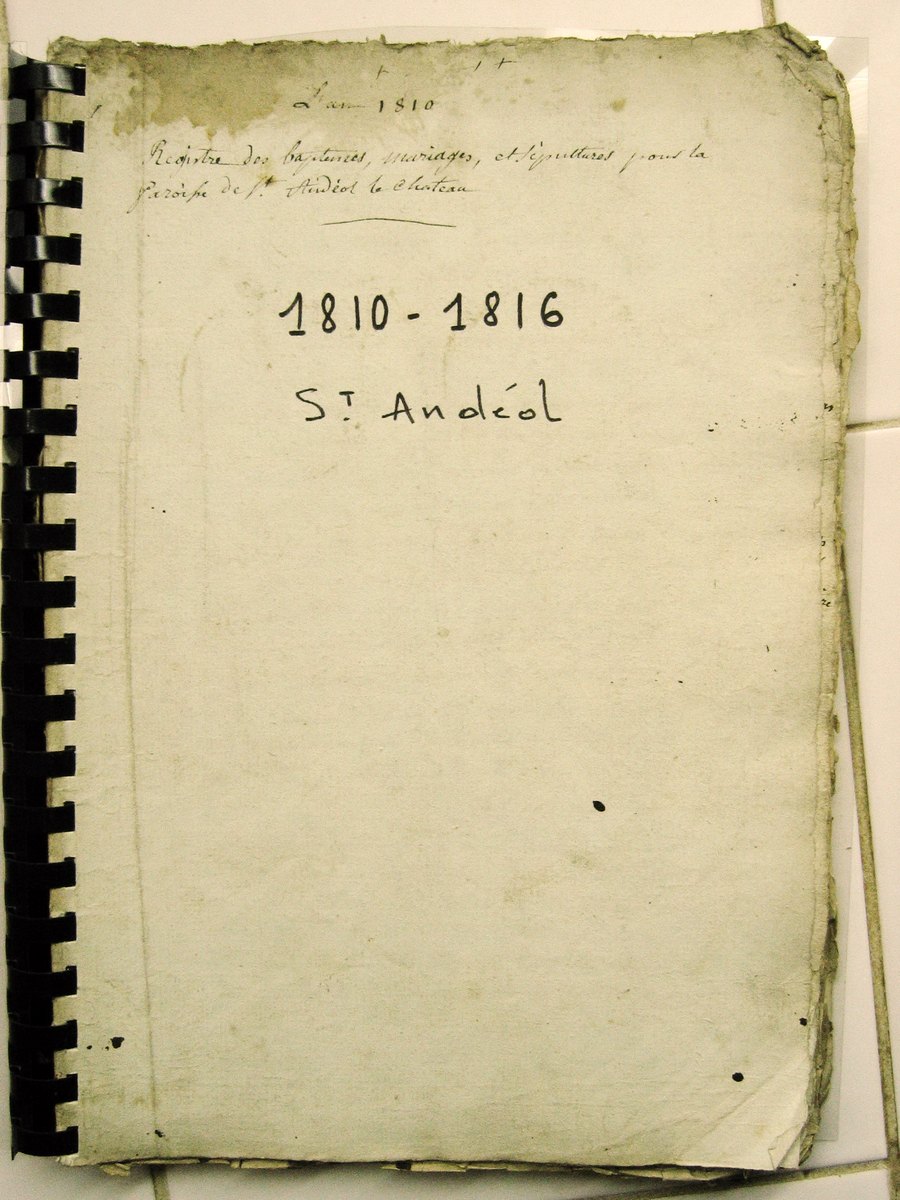 L'an 1810
Registre des baptemes, mariages, et sépultures pour la
paroisse de St. Andéol le Chateau
1810 - 1816
ST Andéol